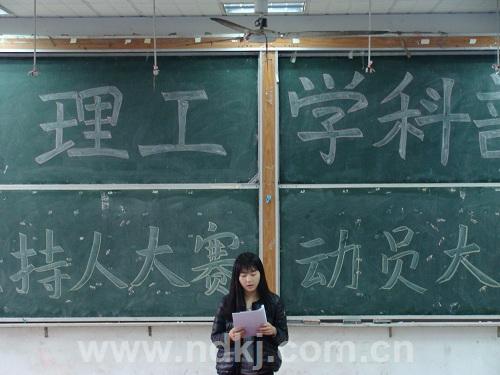 理工学科
持人大赛动员大
www.ndkj.com.cn